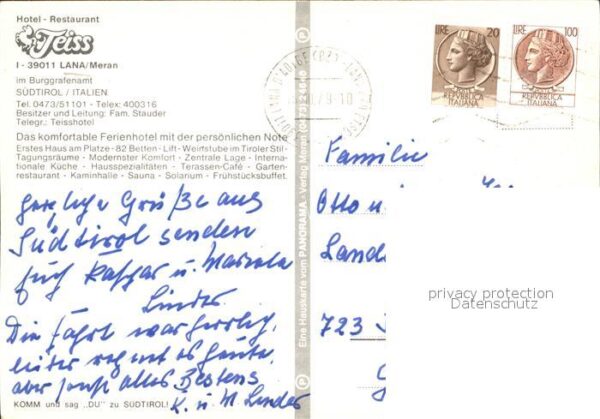 Hotel - Restaurant
Teiss
I - 39011 LANA/Meran
im Burggrafenamt
SÜDTIROL / ITALIEN.
Tel. 0473/51101 - Telex: 400316
Besitzer und Leitung: Fam. Stauder
Telegr.: Teisshotel
Das komfortable Ferienhotel mit der persönlichen Note
Erstes Haus am Platze - 82 Betten - Lift - Weinstube im Tiroler Stil -
Tagungsräume - Modernster Komfort - Zentrale Lage - Interna-
tionale Küche - Hausspezialitäten - Terassen-Café - Garten-
restaurant - Kaminhalle - Sauna - Solarium - Frühstücksbuffet.
herzliche Grüße aus
Südtirol senden
Euch Kaspar u. Mariola
Linder
Die Fahrt war herrlich,
leider regnet es heute,
aber sonst alles Bestens
K. u. M Linder
KOMM und sag "DU" zu SÜDTIROL!
Eine Hauskarte vom PANORAMA - Verlag Meran
LIRE 20
REPVBBLICA
ITALIANA
LIRE 100
REPVBBLICA
ITALIANA
Familie
Otto u
Lande
723
privacy protection
Datenschutz